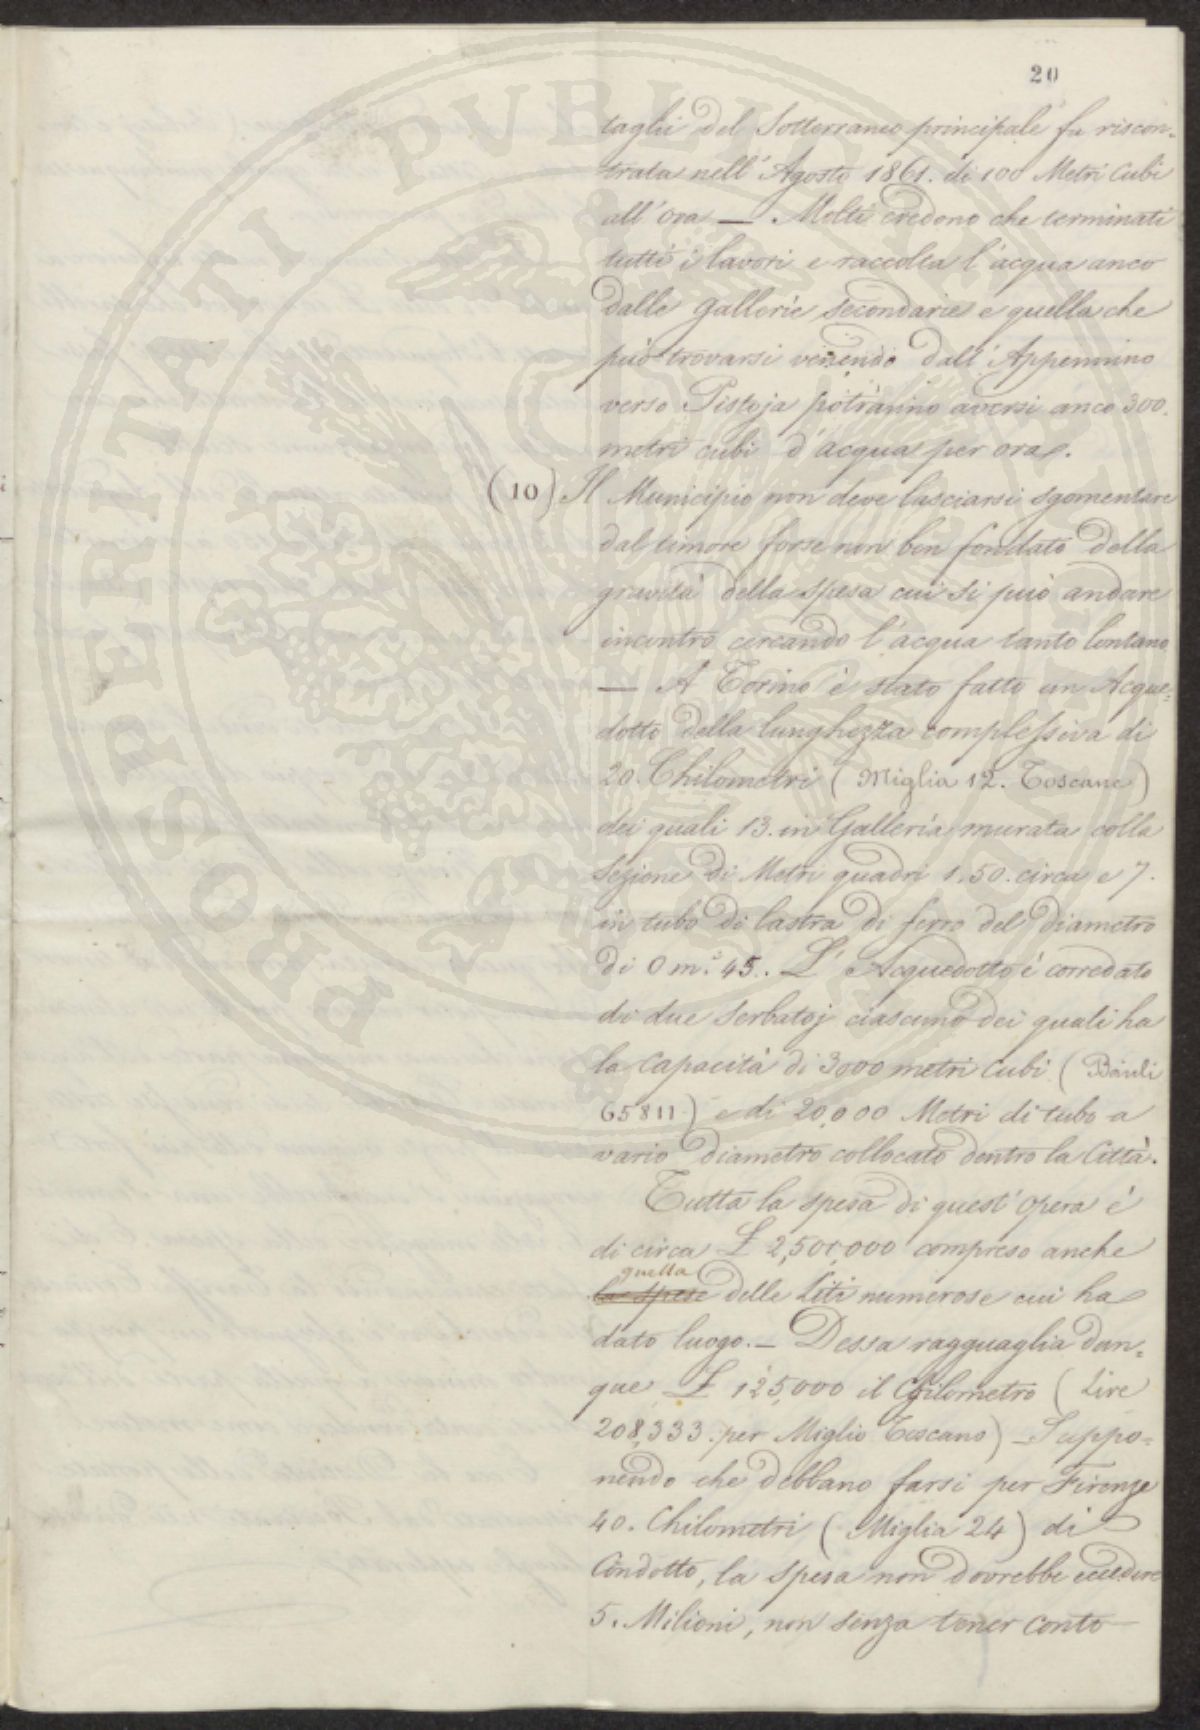 20
taglii del Sotterraneo principale fu riscon=
trata nell'Agosto 1861. di 100 Metri Cubi
all'ora — Molti credono che terminati
tutti i lavori e raccolta l'acqua anco
dalle gallerie secondarie e quella che
può trovarsi venendo dall'Appennino
verso Pistoja potranno aversi anco 300.
metri cubi d'acqua per ora.
(10) Il Municipio non deve lasciarsi sgomentare
dal timore forse non ben fondato della
gravità della spesa cui si può andare
incontro cercando l'acqua tanto lontano
— A Torino è stato fatto un Acque=
dotto della lunghezza complessiva di
20. Chilometri (Miglia 12. Toscane)
dei quali 13. in Galleria murata colla
Sezione di Metri quadri 1.50. circa e 7.
in tubo di lastra di ferro del diametro
di 0 m. 45.. L'Acquedotto è corredato
di due Serbatoj ciascuno dei quali ha
la Capacità di 3000 metri Cubi (Barili
65811) e di 20,000 Metri di tubo a
vario diametro collocato dentro la Città.
Tutta la spesa di quest'opera è
di circa £ 2,500,000 compreso anche
quella
la spese delle Liti numerose cui ha
dato luogo. — Dessa ragguaglia dun=
que £ 125,000 il Chilometro (Lire
208,333. per Miglio Toscano) — Suppo=
nendo che debbano farsi per Firenze
40. Chilometri (Miglia 24) di
Condotto, la spesa non dovrebbe eccedere
5. Milioni, non senza tener conto
PVBLICAE
PROSPERITATI